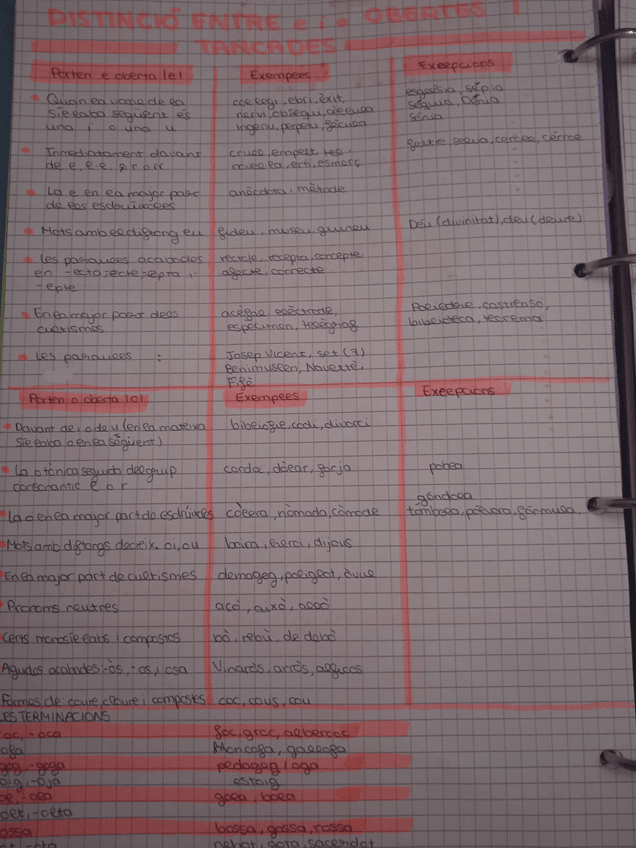 DISTINCIÓ ENTRE e i o OBERTES I
TANCADES
Porten e oberta /e/ Exemples Excepcions
Quan la vocal de la síl·laba següent és una i o una u col·legi, ebri, èxit, nervi, obsequi, ingenu, perpetu, església, sépia, séquia, Dénia, Sénia
Immediatament davant de l, l·l, r o rr cruel, novel·la, erri, esmerç feltre, selva, certes, cérvol
La e en la major part de les esdrúixoles anècdota, mètode
Mots amb el diftong eu fideu, museu, guineu Déu (divinitat), deu (deure)
Les paraules acabades en -ecte, -ecta, -epta i -epte recicle, recepta, concepte afecte, correcte
En la major part dels cultismes acèfal, elèctrode, espècimen, telègraf Poliedre, biblioteca, teorema
Les paraules : Josep Vicent, set (7) Benimuslem, Novetlè, Figè
Porten o oberta /o/ Exemples Excepcions
Davant de i o de u (en la mateixa síl·laba o en la següent) bibliòfil, codi, divorci
La o tònica seguida del grup consonàntic l o r corda, dòlar, forja polca
La o en la major part de esdrúixoles còlera, nòmada, còmode góndola tómbola, pólvora, fórmula
Mots amb diftongs decreix. oi, ou boira, heroi, dijous
En la major part de cultismes demagog, poliglot,
Pronoms neutres açò, això, allò
Certs monosíl·labs i compostos bo, rebò, de debò
Agudes acabades: -os, -os, i osa Vinaròs, arròs,
Formes de: coure, cloure i compostes coc, cous, cou
LES TERMINACIONS
-oc, -oca foc, groc, albercoc
ofa Moncofa, galofa
gog, -goga pedagog / oga
oig, -oja estoig
ol, -ola gola, bola
olt, -olta
ossa bossa, gossa, rossa
ot, -ota nebot, gota, sacerdot